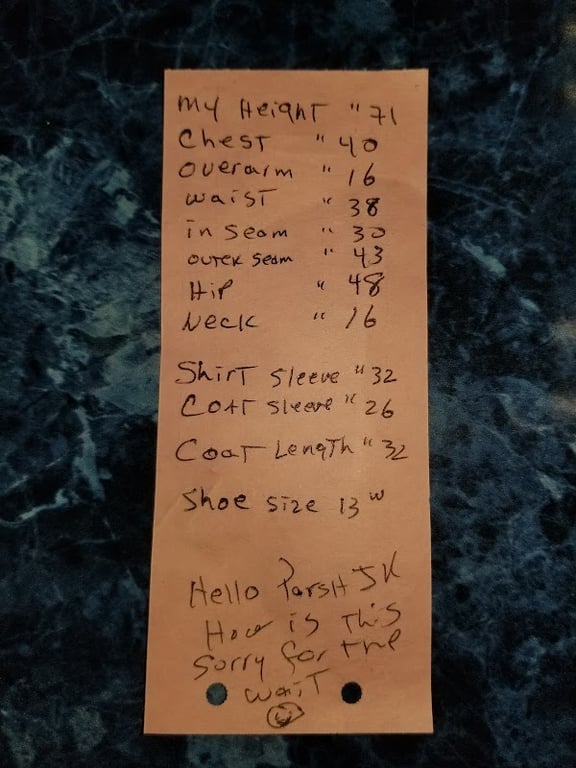 My Height " 71
Chest " 40
overarm " 16
waist " 38
in seam " 30
outer seam " 43
Hip " 48
Neck " 16
Shirt sleeve " 32
Coat sleeve " 26
Coat Length " 32
Shoe size 13 w
Hello JK
How is this
sorry for the
wait